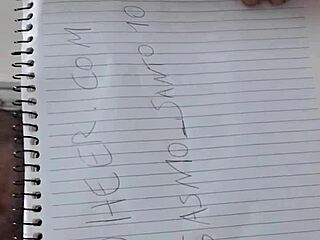 HEER.COM
GASMO_SANTO 10